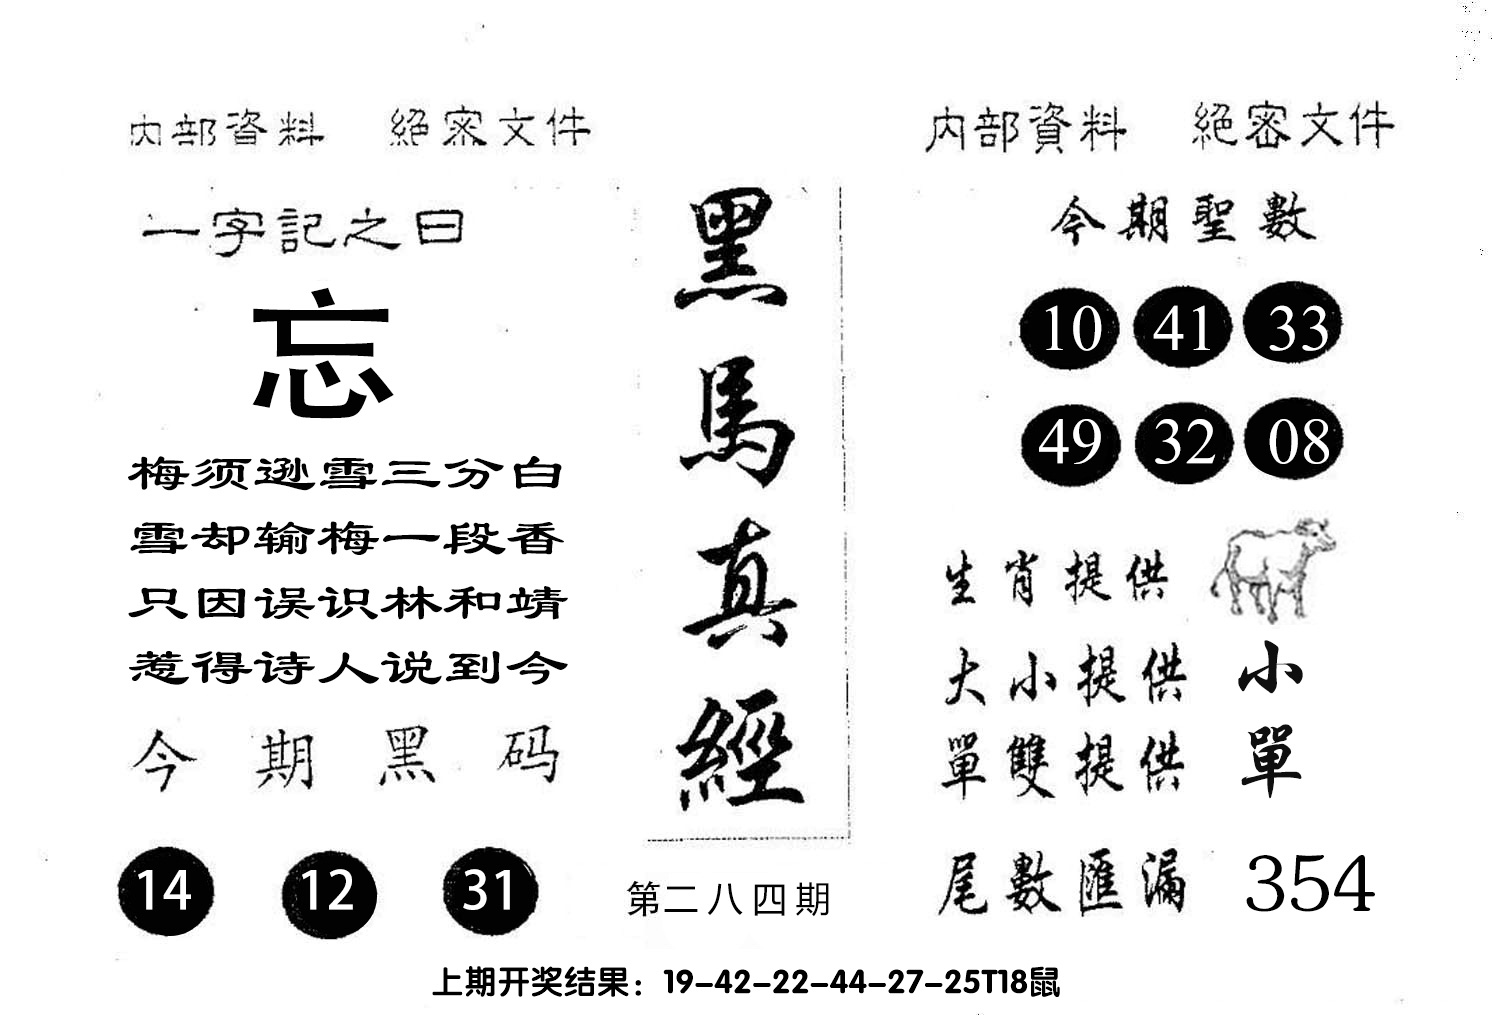 内部資料 絕密文件
一字記之曰
忘
梅须逊雪三分白
雪却输梅一段香
只因误识林和靖
惹得诗人说到今
今期黑码
14 12 31
黑馬真經
第二八四期
内部資料 絕密文件
今期聖數
10 41 33
49 32 08
生肖提供
大小提供 小
單雙提供 單
尾數匯漏 354
上期开奖结果：19-42-22-44-27-25T18鼠